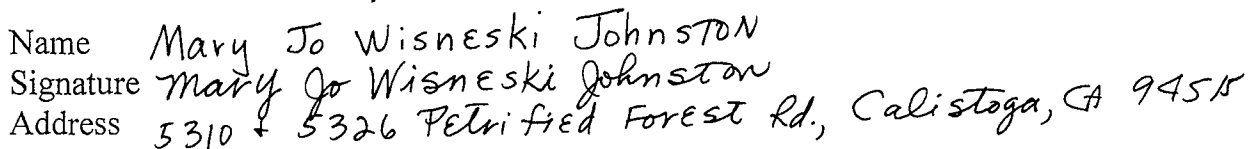 Name Mary Jo Wisneski Johnston
Signature Mary Jo Wisneski Johnston
Address 5310 & 5326 Petrified Forest Rd., Calistoga, CA 94515